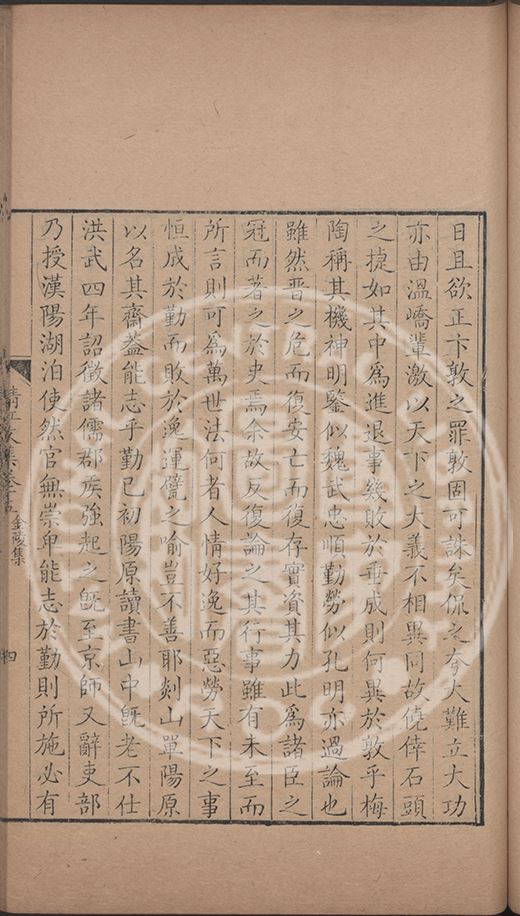 日且欲正卞敦之罪敦固可誅矣侃之夸大難立大功
亦由溫嶠輩激以天下之大義不相異同故僥倖石頭
之捷如其中為進退事幾敗於垂成則何異於敦乎梅
陶稱其機神明鑒似魏武忠順勤勞似孔明亦過論也
雖然晋之危而復安亡而復存實資其力此為諸臣之
冠而著之於史焉余故反復論之其行事雖有未至而
所言則可為萬世法何者人情好逸而惡勞天下之事
恒成於勤而敗於逸運甓之喻豈不善耶剡山單陽原
以名其齋葢能志乎勤已初陽原讀書山中旣老不仕
洪武四年詔徵諸儒郡侯強起之旣至京師又辭吏部
乃授漢陽湖泊使然官無崇卑能志於勤則所施必有
金陵集
四